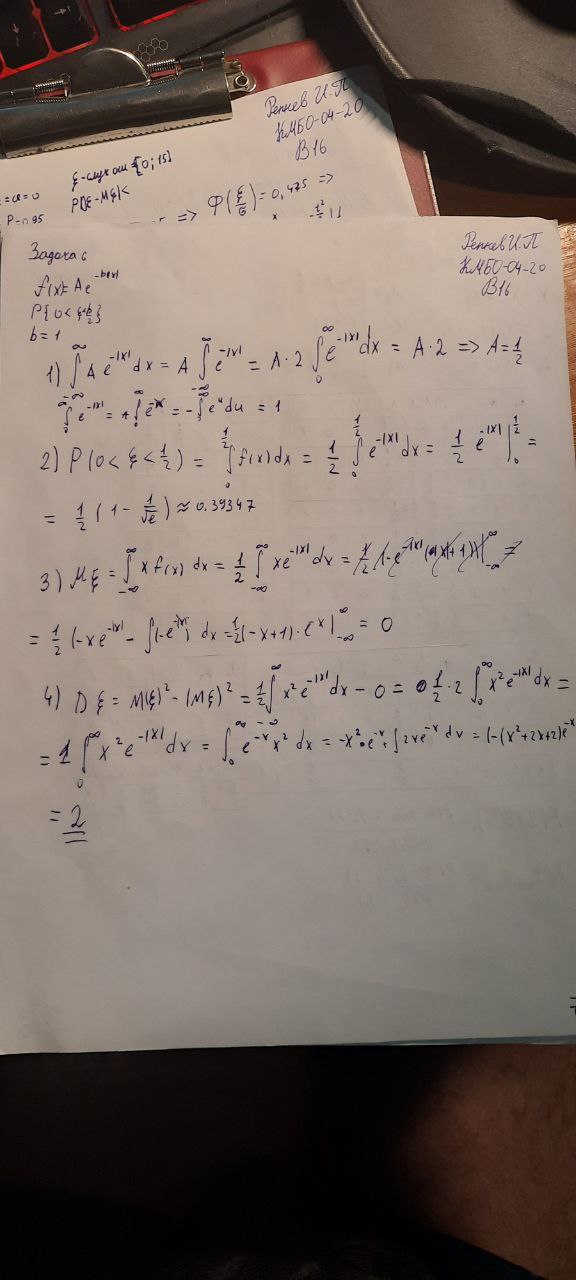 Репнев И.П
КМБО-04-20
В16
P=0.95
=> Ф(ξ/σ) = 0,475 =>
Репнев И.П
КМБО-04-20
В16
Задача 6
f(x)= Ae^{-b|x|}
P{0<ξ<b/2}
b = 1
1) ∫_{-∞}^{∞} A e^{-|x|} dx = A ∫_{-∞}^{∞} e^{-|x|} = A·2 ∫_0^∞ e^{-|x|} dx = A·2 => A = 1/2
2) P(0<ξ<1/2) = ∫_0^{1/2} f(x)dx = 1/2 ∫_0^{1/2} e^{-|x|} dx = 1/2 e^{-|x|} |_0^{1/2} =
= 1/2 (1 - 1/√e) ≈ 0.39347
3) Mξ = ∫_{-∞}^{∞} x f(x) dx = 1/2 ∫_{-∞}^{∞} xe^{-|x|} dx =
= 1/2 (-xe^{-|x|} - ∫(-e^{-|x|}) dx = 1/2 (-x+1)·e^{-x} |_{-∞}^{∞} = 0
4) Dξ = M(ξ)² - (Mξ)² = 1/2 ∫_{-∞}^{∞} x² e^{-|x|} dx - 0 = 1/2 · 2 ∫_0^∞ x² e^{-|x|} dx =
= 1 ∫_0^∞ x² e^{-|x|} dx = ∫_0^∞ e^{-x} x² dx = -x²·e^{-x} + ∫ 2xe^{-x} dx = (-(x²+2x+2)e^{-x}
= 2